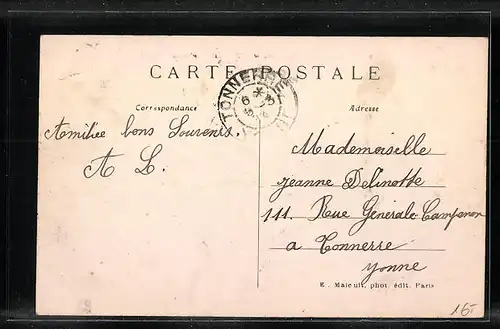 CARTE POSTALE
TONNERRE
Correspondance
Adresse
Amitiée bons Souvenirs.
A L.
Mademoiselle
Jeanne Delinotte
111. Rue Générale-Campenon
a Tonnerre
Yonne
E. Maleuit, phot. édit. Paris